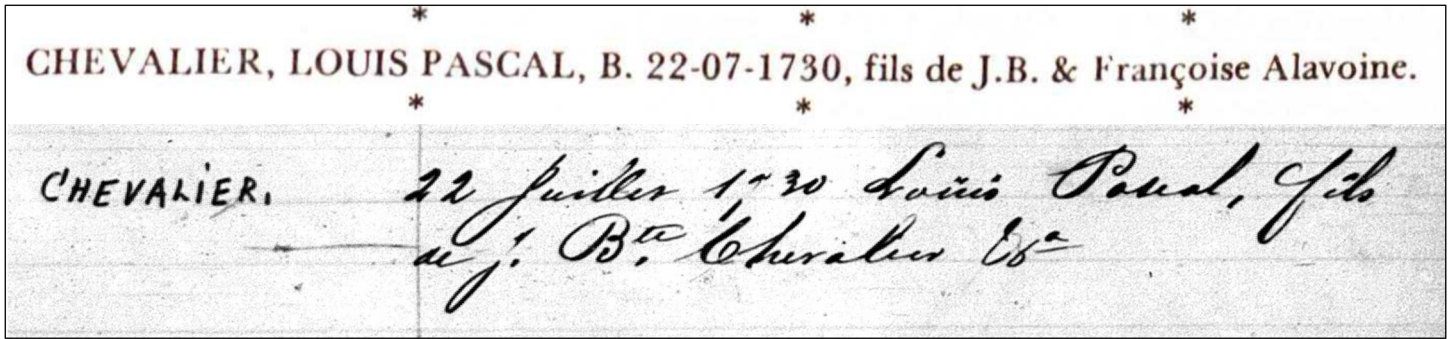 * * *
CHEVALIER, LOUIS PASCAL, B. 22-07-1730, fils de J.B. & Françoise Alavoine.
* * *
CHEVALIER. 22 Juillet 1730 Louis Pascal, fils
de J. Bte Chevalier